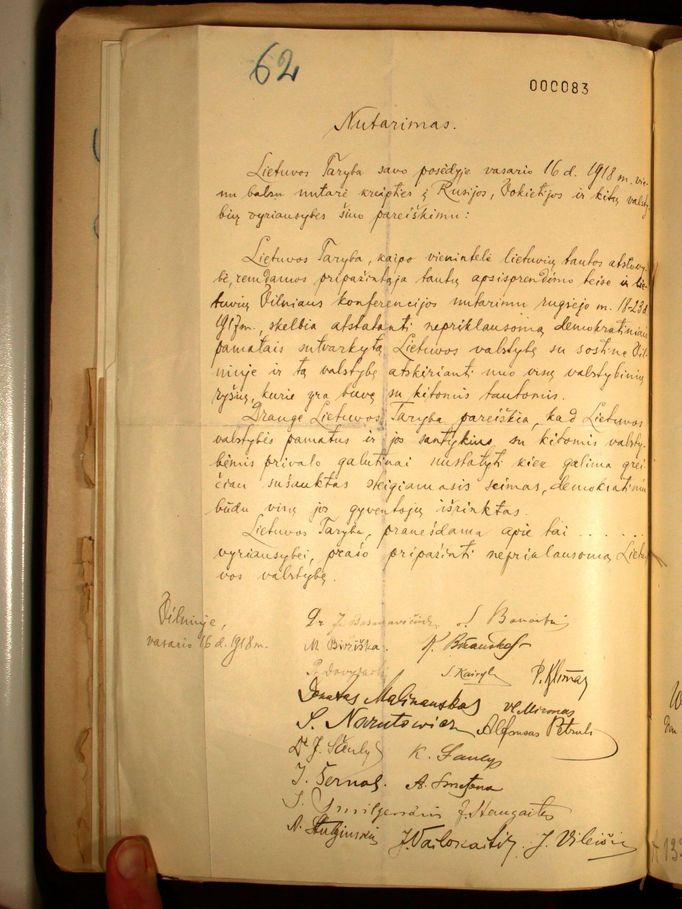 62
000083
Nutarimas.
Lietuvos Taryba savo posėdyje vasario 16 d. 1918 m. vie-
nu balsu nutarė kreiptis į Rusijos, Vokietijos ir kitų valsty-
bių vyriausybes šiuo pareiškimu:
Lietuvos Taryba, kaipo vienintelė lietuvių tautos atstovy-
bė, remdamos pripažintąja tautų apsisprendimo teise ir lie-
tuvių Vilniaus konferencijos nutarimu rugsėjo m. 18-23 d.
1917 m., skelbia atstatanti nepriklausomą demokratiniais
pamatais sutvarkytą Lietuvos valstybę su sostine Vil-
niuje ir tą valstybę atskirianti nuo visų valstybinių
ryšių, kurie yra buvę su kitomis tautomis.
Drauge Lietuvos Taryba pareiškia, kad Lietuvos
valstybės pamatus ir jos santykius su kitomis valsty-
bėmis privalo galutinai nustatyti kiek galima grei-
čiau sušauktas steigiamasis seimas, demokratiniu
būdu visų jos gyventojų išrinktas.
Lietuvos Taryba, pranešdama apie tai . . . . . .
vyriausybei, prašo pripažinti nepriklausomą Lietu-
vos valstybę.
Vilniuje,
vasario 16 d. 1918 m.
Dr J. Basanavičius S. Banaitis
M Biržiška K. Bizauskas
P. Dovydaitis S Kairys P. Klimas
Donatas Malinauskas Vl. Mironas
S. Narutowicz Alfonsas Petrulis
Dr J. Šaulys K. Šaulys
J. Šernas A. Smetona
J. Smilgevičius J. Staugaitis
A. Stulginskis J. Vailokaitis J. Vileišis